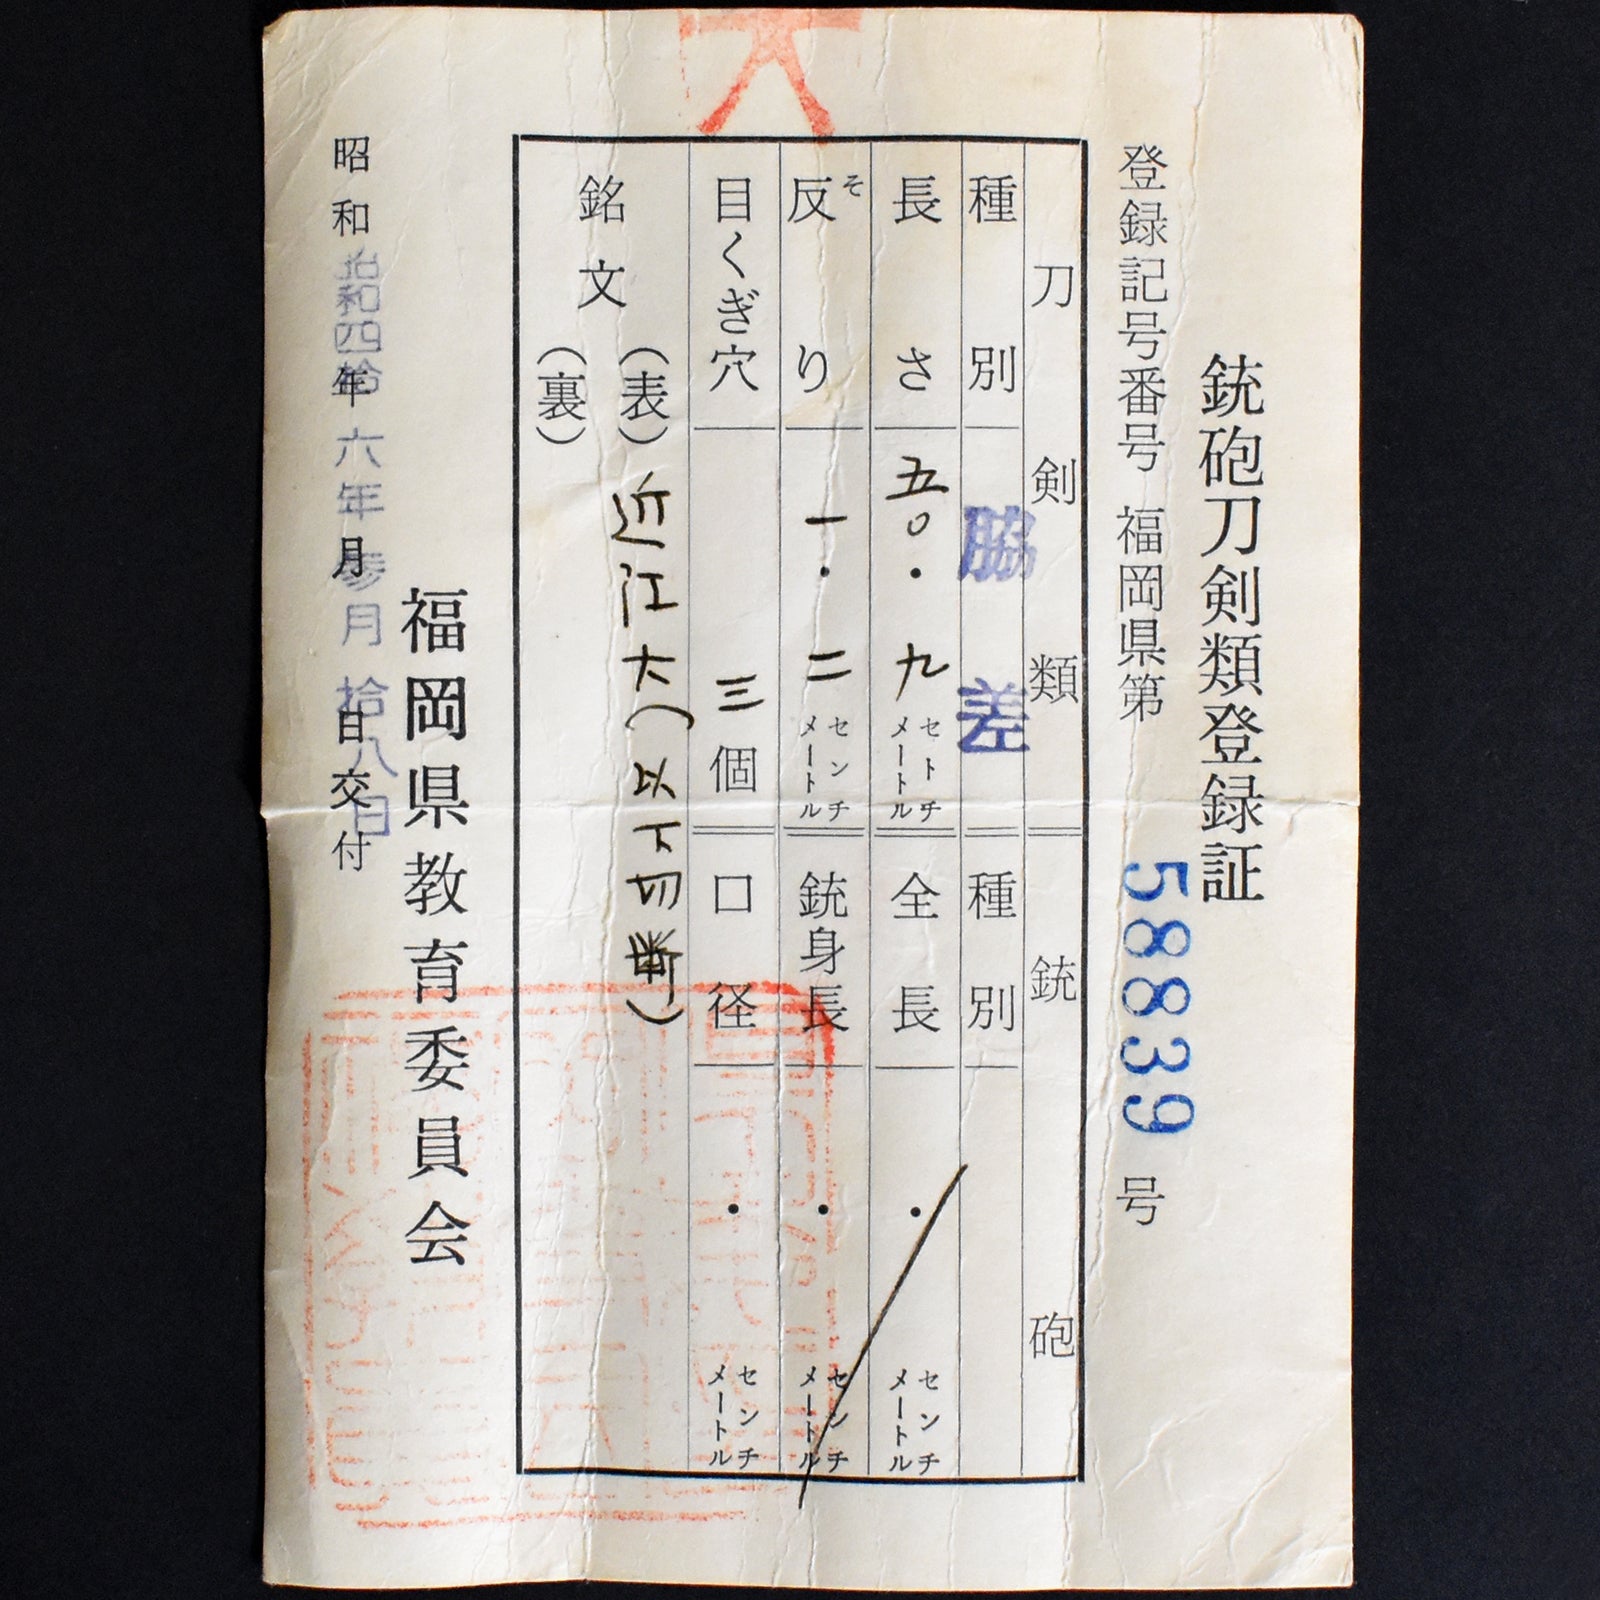 大
銃砲刀剣類登録証
登録記号番号 福岡県第 58839 号
刀剣類 銃砲
種別 脇差 種別
長さ 五〇・九 センチメートル 全長 ・ センチメートル
反り そ 一・二 センチメートル 銃身長 ・ センチメートル
目くぎ穴 三個 口径 ・ センチメートル
銘文 (表) 近江大(以下切断)
(裏)
福岡県教育委員会
昭和 年 月 日交付
昭和四拾六年参月拾八日